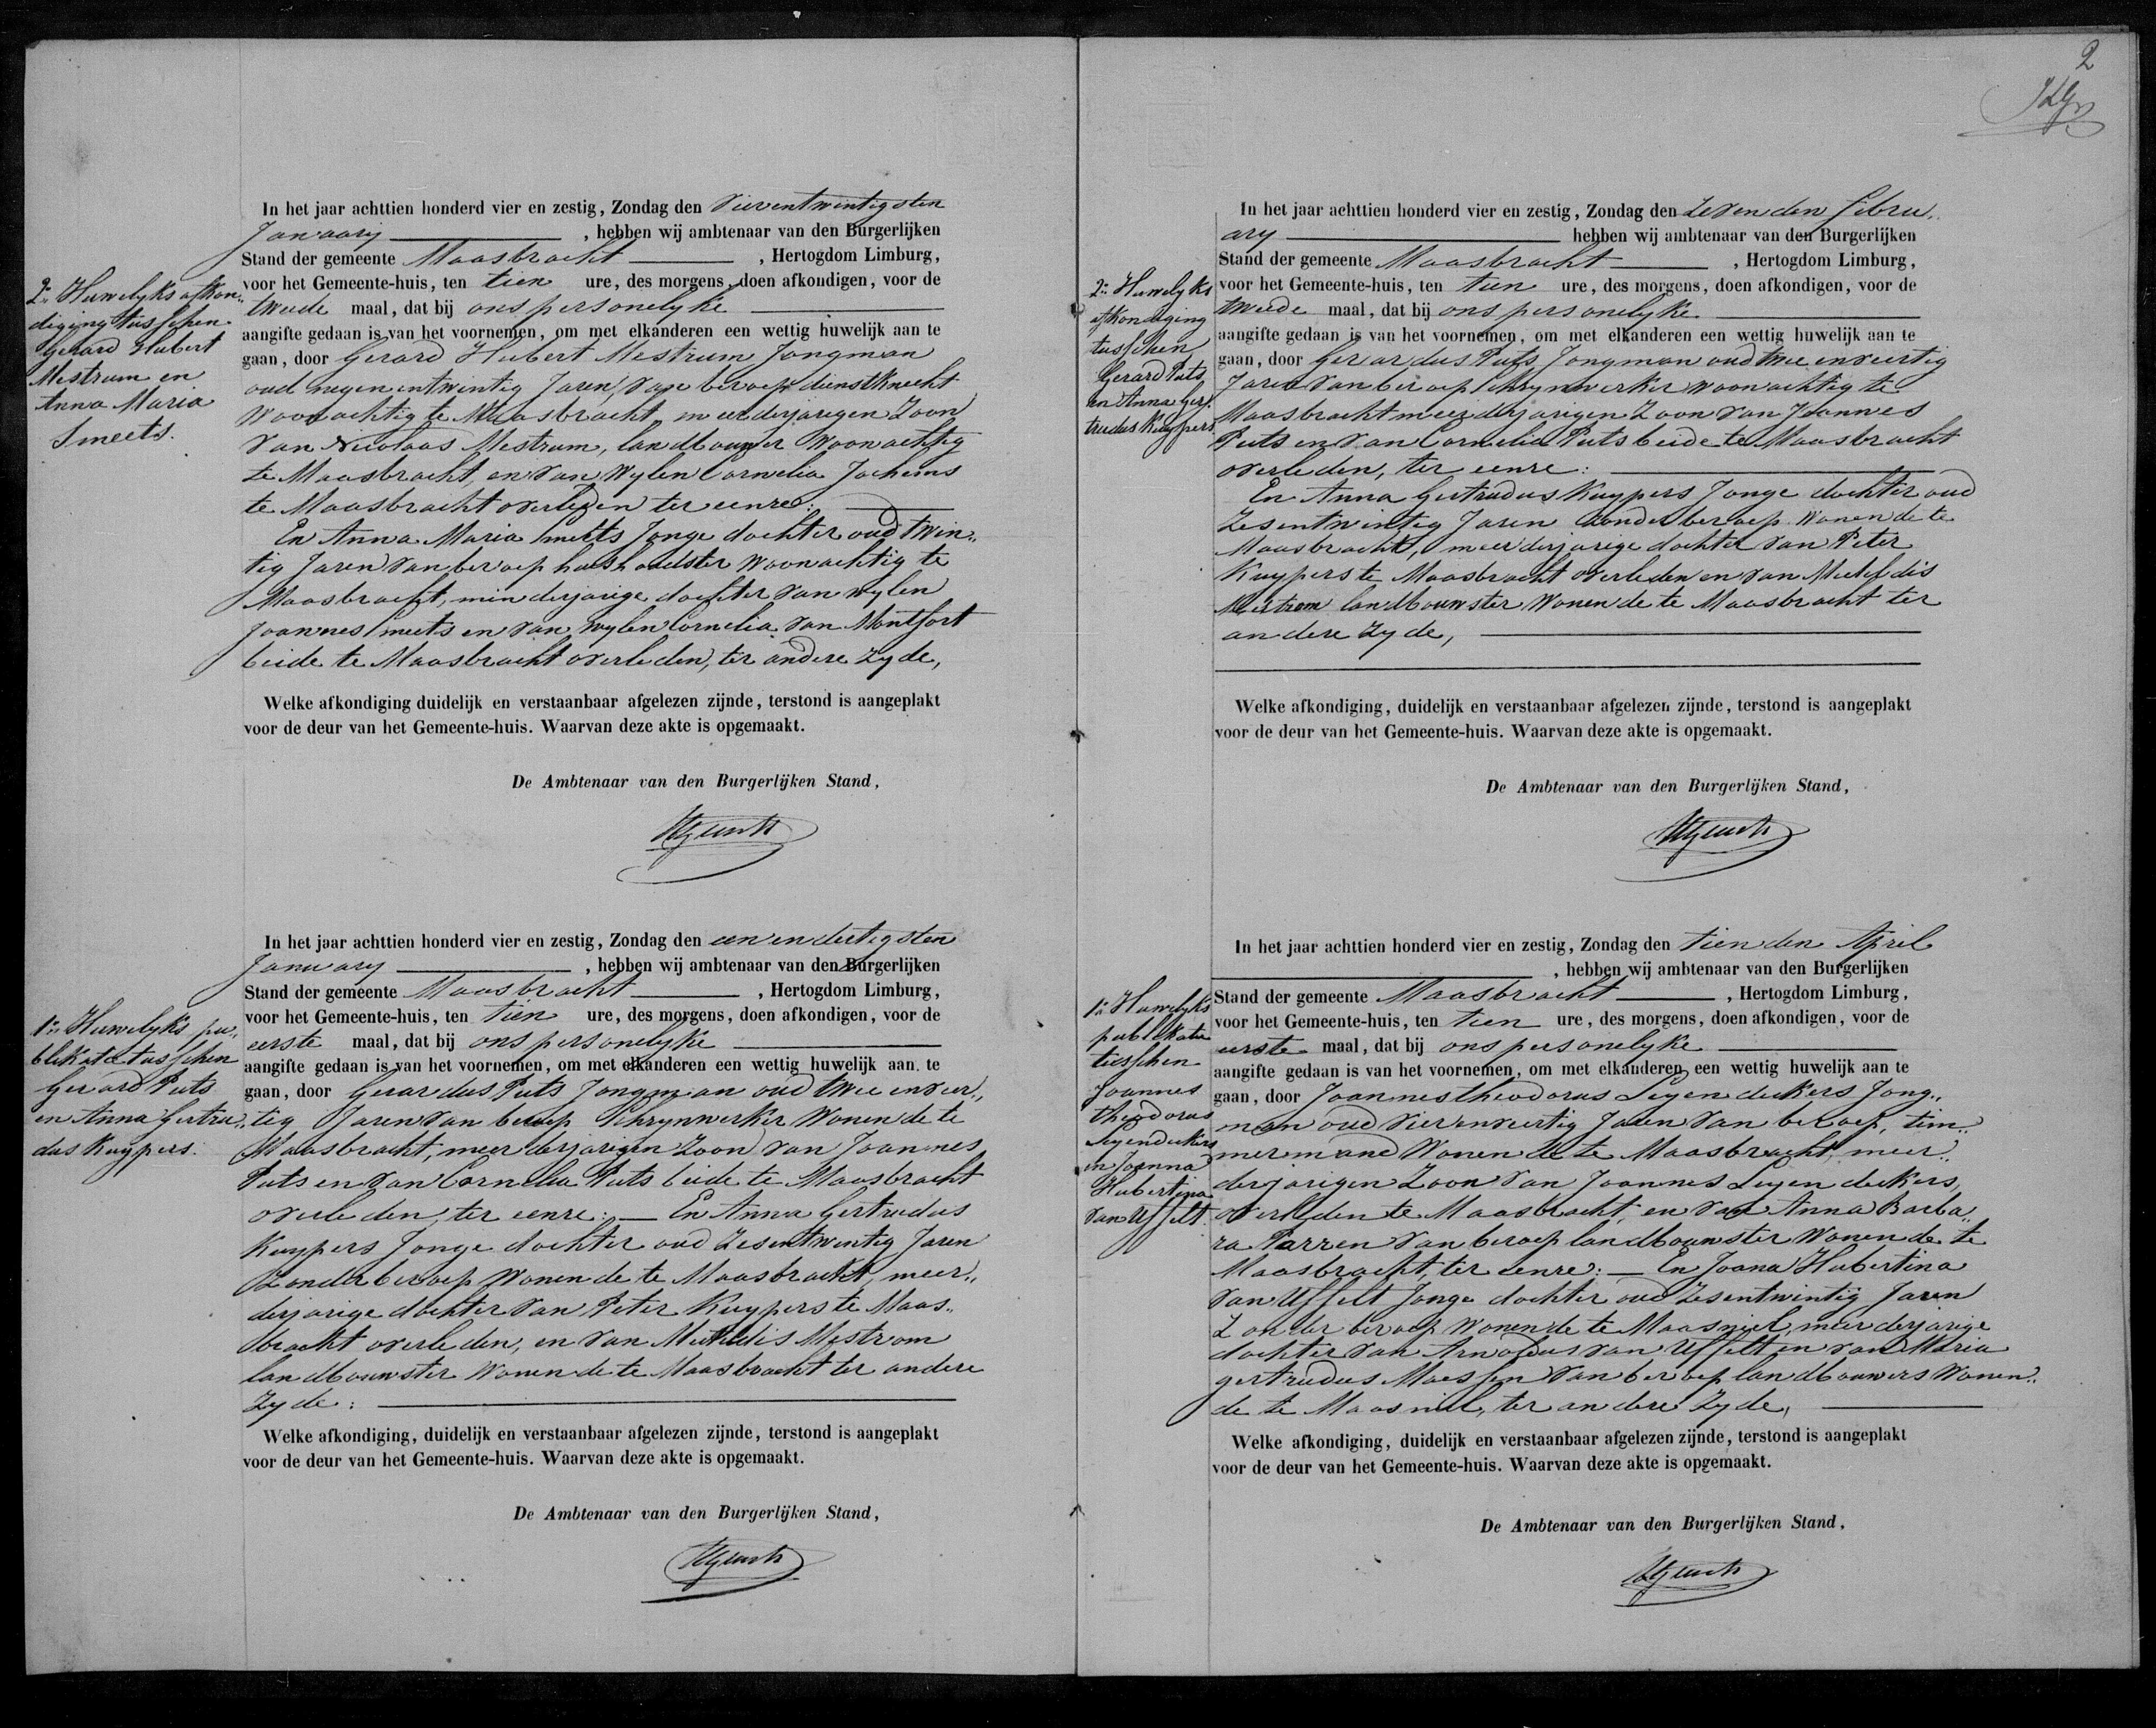 In het jaar achttien honderd vier en zestig, Zondag den vierentwintigsten
January , hebben wij ambtenaar van den Burgerlijken
Stand der gemeente Maasbracht , Hertogdom Limburg,
voor het Gemeente-huis, ten tien ure, des morgens, doen afkondigen, voor de
tweede maal, dat bij ons personelyke
aangifte gedaan is van het voornemen, om met elkanderen een wettig huwelijk aan te
gaan, door Gerard Hubert Mestrum Jongman
oud negenentwintig Jaren, van beroep dienstknecht
woonachtig te Maasbracht, meerderjarigen Zoon
van Nicolaas Mestrum, landbouwer woonachtig
te Maasbracht, en van wylen Cornelia Jochems
te Maasbracht overleden ter eenre:
En Anna Maria Smeets Jonge dochter oud twin„
tig Jaren van beroep huishoudster woonachtig te
Maasbracht, minderjarige dochter van wylen
Joannes Smeets en van wylen Cornelia van Montfort
beide te Maasbracht overleden, ter andere zyde,
2e Huwelyks afkon„
diging tusschen
Gerard Hubert
Mestrum en
Anna Maria
Smeets.
Welke afkondiging duidelijk en verstaanbaar afgelezen zijnde, terstond is aangeplakt
voor de deur van het Gemeente-huis. Waarvan deze akte is opgemaakt.
De Ambtenaar van den Burgerlijken Stand,
In het jaar achttien honderd vier en zestig, Zondag den een en dertigsten
January , hebben wij ambtenaar van den Burgerlijken
Stand der gemeente Maasbracht , Hertogdom Limburg,
voor het Gemeente-huis, ten tien ure, des morgens, doen afkondigen, voor de
eerste maal, dat bij ons personelyke
aangifte gedaan is van het voornemen, om met elkanderen een wettig huwelijk aan te
gaan, door Gerardus Puts Jongman oud twee en veer„
tig Jaren van beroep Schrynwerker wonende te
Maasbracht, meerderjarigen Zoon van Joannes
Puts en van Cornelia Puts beide te Maasbracht
overleden, ter eenre: En Anna Gertrudus
Kuypers Jonge dochter oud Zesentwintig Jaren
Zonder beroep wonende te Maasbracht, meer„
derjarige dochter van Peter Kuypers te Maas„
bracht overleden, en van Mechtildis Mestrom
landbouwster wonende te Maasbracht ter andere
Zyde:
1e Huwelyks pu„
blikatie tusschen
Gerard Puts
en Anna Gertru„
dus Kuypers.
Welke afkondiging, duidelijk en verstaanbaar afgelezen zijnde, terstond is aangeplakt
voor de deur van het Gemeente-huis. Waarvan deze akte is opgemaakt.
De Ambtenaar van den Burgerlijken Stand,
2
In het jaar achttien honderd vier en zestig, Zondag den Zevenden Febru„
ary hebben wij ambtenaar van den Burgerlijken
Stand der gemeente Maasbracht , Hertogdom Limburg,
voor het Gemeente-huis, ten tien ure, des morgens, doen afkondigen, voor de
tweede maal, dat bij ons personelyke
aangifte gedaan is van het voornemen, om met elkanderen een wettig huwelijk aan te
gaan, door Gerardus Puts Jongman oud twee en veertig
Jaren van beroep schrynwerker woonachtig te
Maasbracht meerderjarigen Zoon van Joannes
Puts en van Cornelia Puts beide te Maasbracht
overleden, ter eenre:
En Anna Gertrudus Kuypers Jonge dochter oud
Zesentwintig Jaren Zonder beroep wonende te
Maasbracht, meerderjarige dochter van Peter
Kuypers te Maasbracht overleden en van Mechtildis
Mestrom landbouwster wonende te Maasbracht ter
andere Zyde,
2e Huwelyks
afkondiging
tusschen
Gerard Puts
en Anna Ger„
trudus Kuypers
Welke afkondiging, duidelijk en verstaanbaar afgelezen zijnde, terstond is aangeplakt
voor de deur van het Gemeente-huis. Waarvan deze akte is opgemaakt.
De Ambtenaar van den Burgerlijken Stand,
In het jaar achttien honderd vier en zestig, Zondag den tienden April
, hebben wij ambtenaar van den Burgerlijken
Stand der gemeente Maasbracht , Hertogdom Limburg,
voor het Gemeente-huis, ten tien ure, des morgens, doen afkondigen, voor de
eerste maal, dat bij ons personelyke
aangifte gedaan is van het voornemen, om met elkanderen een wettig huwelijk aan te
gaan, door Joannes theodorus Leyendeckers Jong„
man oud vierenveertig Jaren van beroep, tim„
merman wonende te Maasbracht, meer„
derjarigen Zoon van Joannes Leyendeckers,
overleden te Maasbracht, en van Anna Barba„
ra Parren van beroep landbouwster wonende te
Maasbracht, ter eenre: En Joana Hubertina
van Uffelt Jonge dochter oud Zesentwintig Jaren
Zonder beroep wonende te Maasniel, meerderjarige
dochter van Arnoldus van Uffelt en van Maria
gertrudus Maessen van beroep landbouwers wonen„
de te Maasniel, ter andere Zyde,
1e Huwelyks
publikatie
tusschen
Joannes
theodorus
Leyendeckers
en Joanna
Hubertina
van Uffelt.
Welke afkondiging, duidelijk en verstaanbaar afgelezen zijnde, terstond is aangeplakt
voor de deur van het Gemeente-huis. Waarvan deze akte is opgemaakt.
De Ambtenaar van den Burgerlijken Stand,